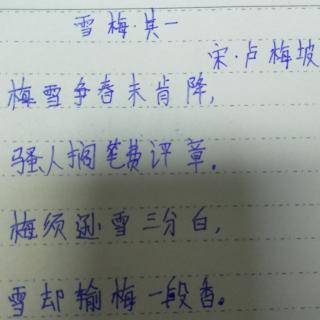 雪梅·其一
宋·卢梅坡
梅雪争春未肯降,
骚人搁笔费评章。
梅须逊雪三分白,
雪却输梅一段香。